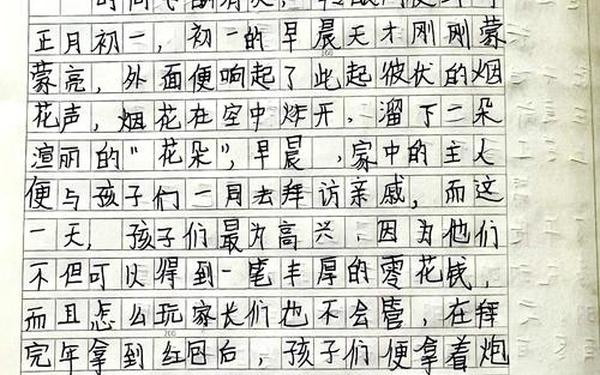 正月初一，初一的早晨天才刚刚蒙
蒙亮，外面便响起了此起彼伏的烟
花声，烟花在空中炸开，溜下二朵
渲丽的“花朵”，早晨，家中的主人
便与孩子们一月去拜访亲戚，而这
一天，孩子们最为高兴，因为他们
不但可以得到一笔丰厚的零花钱，
而且怎么玩家长们也不会管，在拜
完年拿到红包后，孩子们便拿着炮